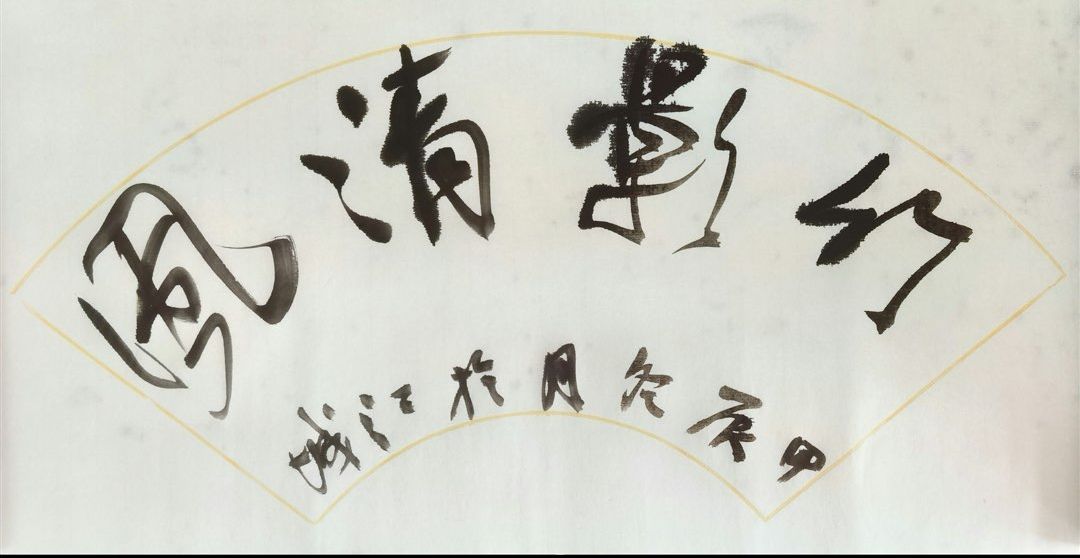 竹影清風
甲辰冬月於江城